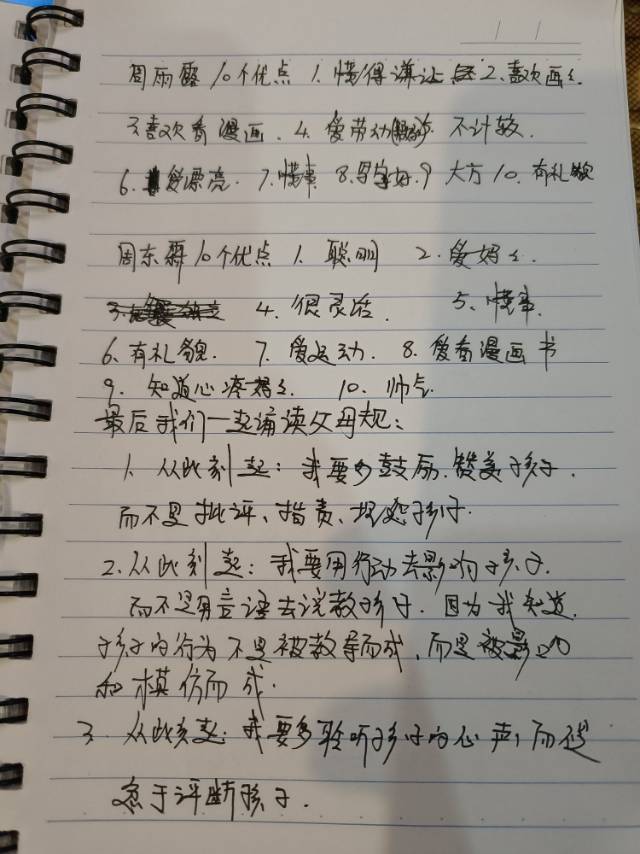 周雨露10个优点 1. 懂得谦让 2、喜欢画画.
3喜欢看漫画. 4. 爱劳动 不计较.
6. 爱漂亮. 7. 懂事 8.写字好.9 大方10. 有礼貌
周东霖10个优点 1. 聪明 2. 爱妈妈.
3. 4. 很灵活. 5. 懂事.
6、有礼貌. 7. 爱运动. 8. 爱看漫画书
9. 知道心疼妈妈. 10. 帅气.
最后我们一起诵读父母规:
1. 从此刻起: 我要多鼓励.赞美孩子.
而不是批评、指责、埋怨孩子.
2.从此刻起: 我要用行动去影响孩子.
而不是用言语去说教孩子. 因为我知道.
孩子的行为不是被教导而成,而是被影响
和模仿而成.
3. 从此刻起: 我要多聆听孩子的心声,而不是
急于评断孩子.